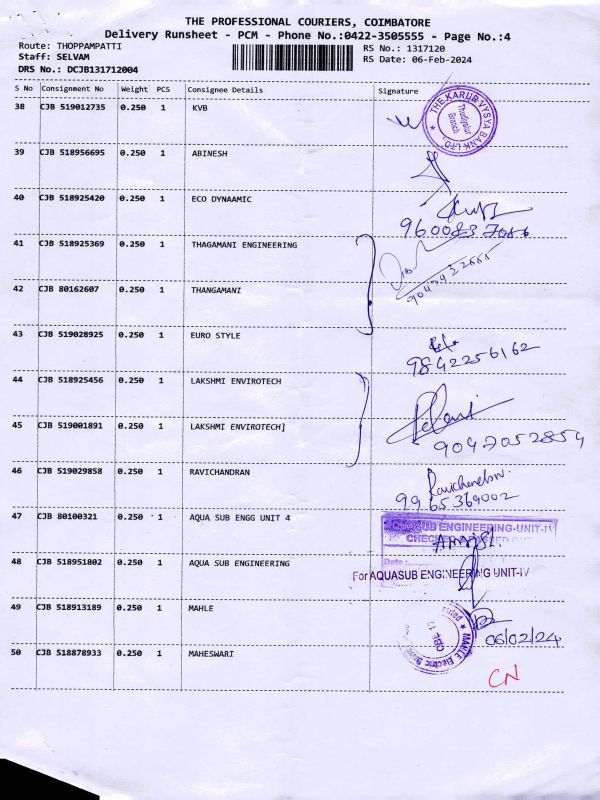 THE PROFESSIONAL COURIERS, COIMBATORE
Delivery Runsheet - PCM - Phone No.:0422-3505555 - Page No.:4
Route: THOPPAMPATTI RS No.: 1317120
Staff: SELVAM RS Date: 06-Feb-2024
DRS No.: DCJB131712004
S No Consignment No Weight PCS Consignee Details Signature
38 CJB 519012735 0.250 1 KVB
THE KARUR VYSYA BANK LTD.
Thudiyalur
Branch
39 CJB 518956695 0.250 1 ABINESH
40 CJB 518925420 0.250 1 ECO DYNAAMIC
9600837086
41 CJB 518925369 0.250 1 THAGAMANI ENGINEERING
42 CJB 80162607 0.250 1 THANGAMANI
43 CJB 519028925 0.250 1 EURO STYLE
9842256162
44 CJB 518925456 0.250 1 LAKSHMI ENVIROTECH
45 CJB 519001891 0.250 1 LAKSHMI ENVIROTECH]
9047052854
46 CJB 519029858 0.250 1 RAVICHANDRAN
Ravichandran.
9965369002
47 CJB 80100321 0.250 1 AQUA SUB ENGG UNIT 4
AQUASUB ENGINEERING-UNIT-IV
48 CJB 518951802 0.250 1 AQUA SUB ENGINEERING
Date:
For AQUASUB ENGINEERING UNIT-IV
49 CJB 518913189 0.250 1 MAHLE
MAHLE Electric
06/02/24
50 CJB 518878933 0.250 1 MAHESWARI
CN